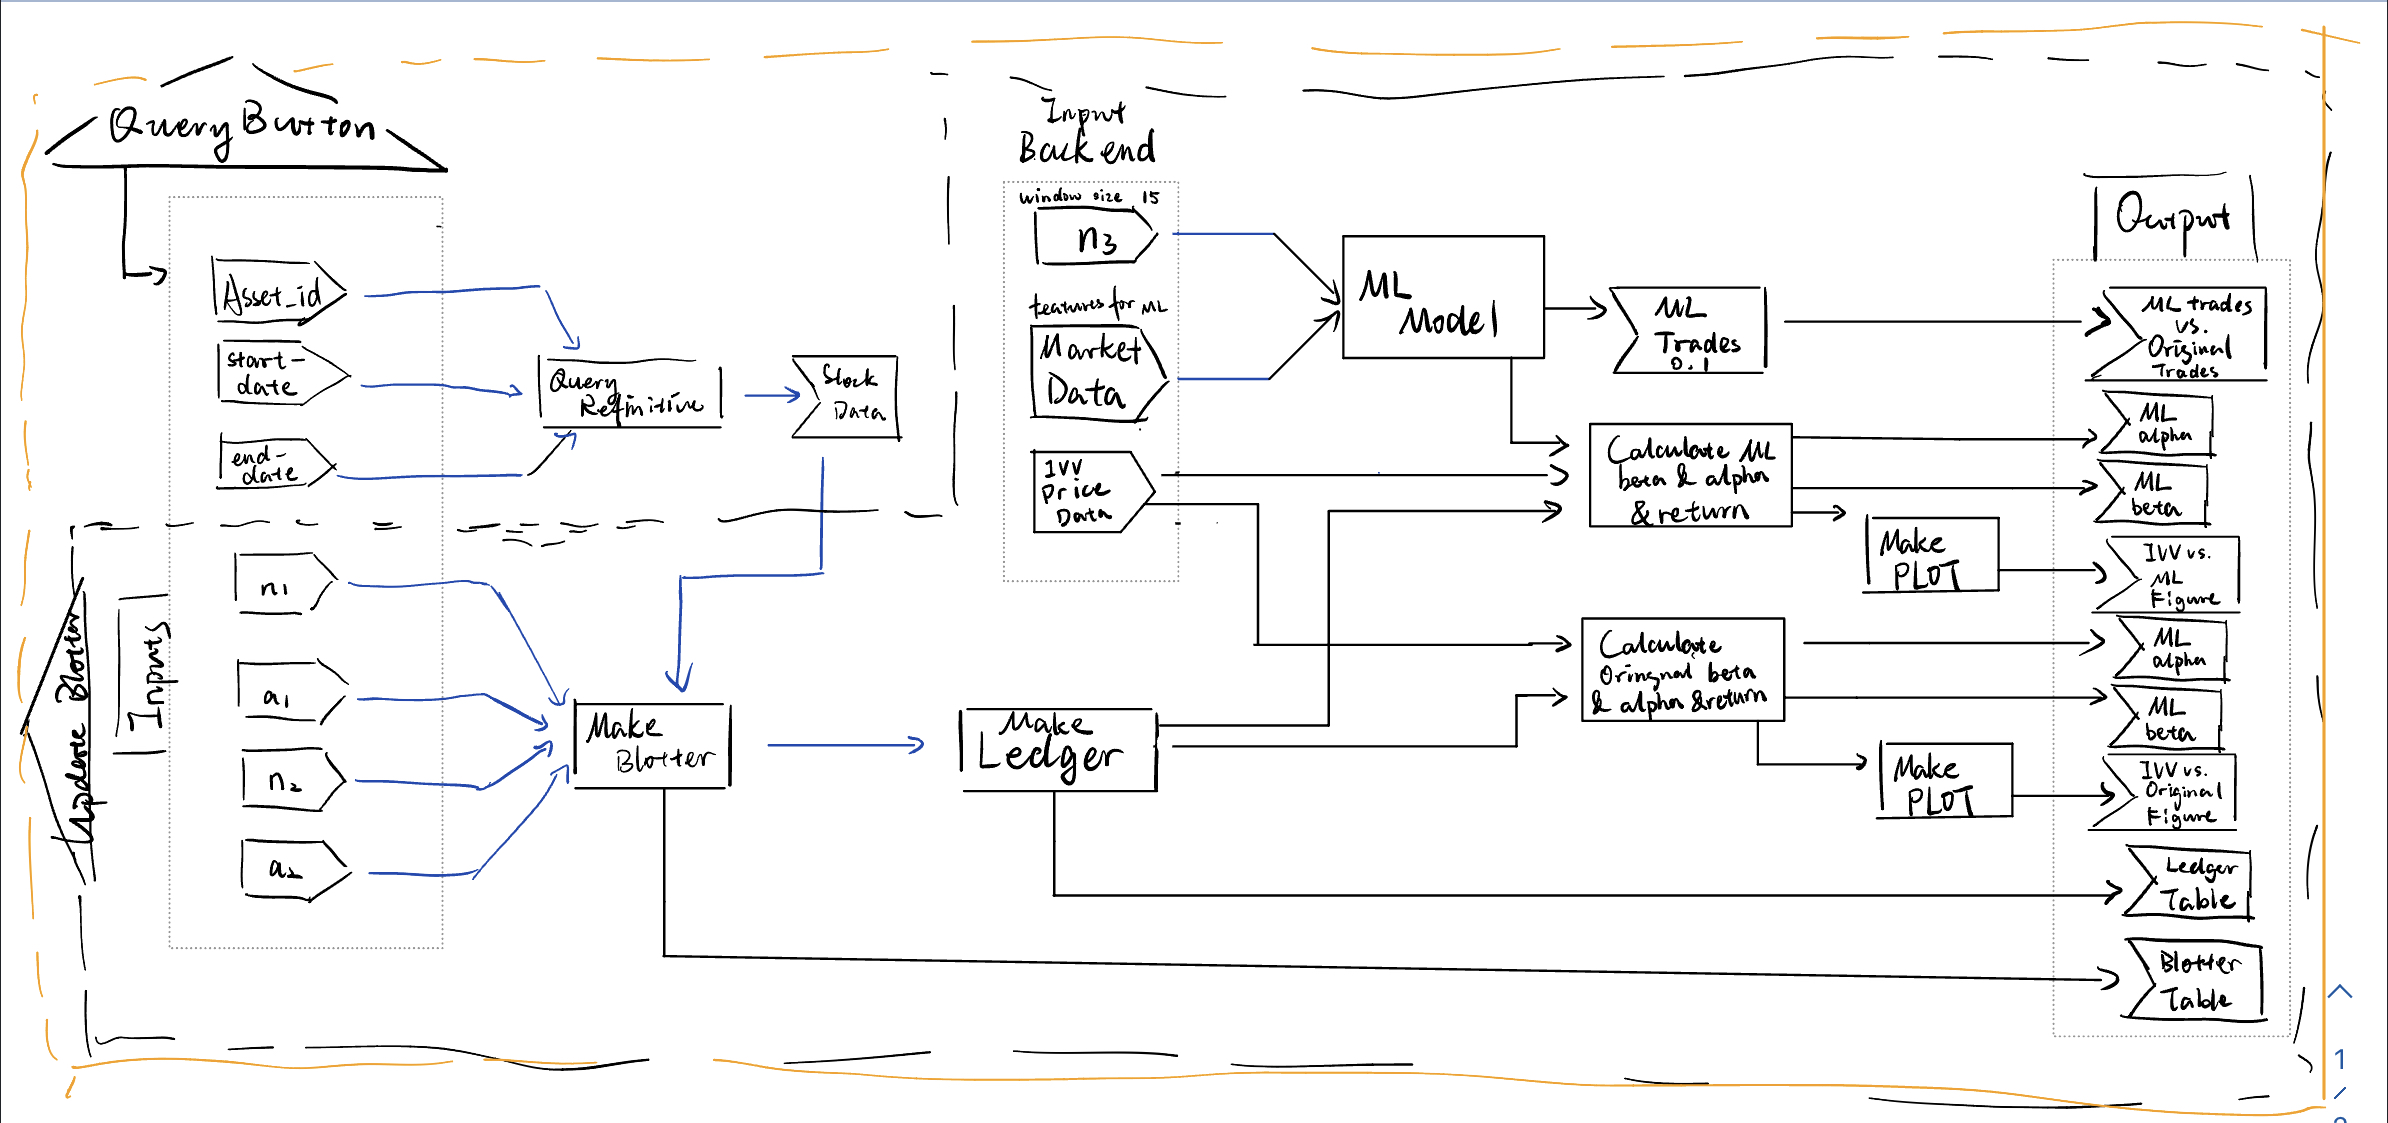 Query Button
Asset_id
start-
date
end-
date
Query
Refinitive
Stock
Data
Update Blotter
Inputs
n1
a1
n2
a2
Make
Blotter
Make
Ledger
Input
Backend
window size 15
n3
features for ML
Market
Data
IVV
Price
Data
ML
Model
ML
Trades
0.1
Calculate ML
beta & alpha
& return
Make
PLOT
Calculate
Oringnal beta
& alpha & return
Make
PLOT
Output
ML trades
vs.
Original
Trades
ML
alpha
ML
beta
IVV vs.
ML
Figure
ML
alpha
ML
beta
IVV vs.
Original
Figure
Ledger
Table
Blotter
Table
1
/